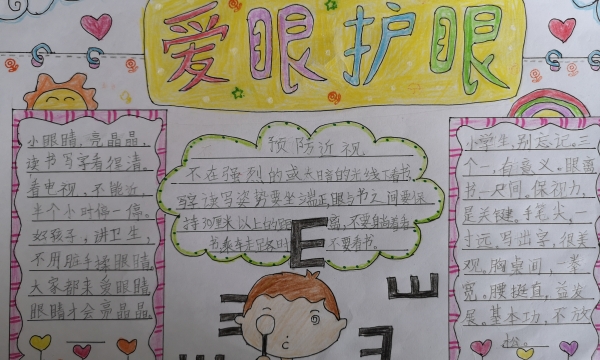 爱眼护眼
小眼睛,亮晶晶,
读书写字看得清。
看电视,不能近,
半个小时停一停。
好孩子,讲卫生,
不用脏手揉眼睛。
大家都来爱眼睛,
眼睛才会亮晶晶
预防近视
不在强烈的或太暗的光线下看书,
写字读写姿势要坐端正,眼与书之间要保
持30厘米以上的距离,不要躺着看
书乘车走路时不要看书。
E
小学生,别忘记,三
个一,有意义。眼离
书一尺间。保视力,
是关键。手笔尖,一
寸远。写出字,很美
观。胸桌间,一拳
宽。腰挺直,益发
展。基本功,不放
松。